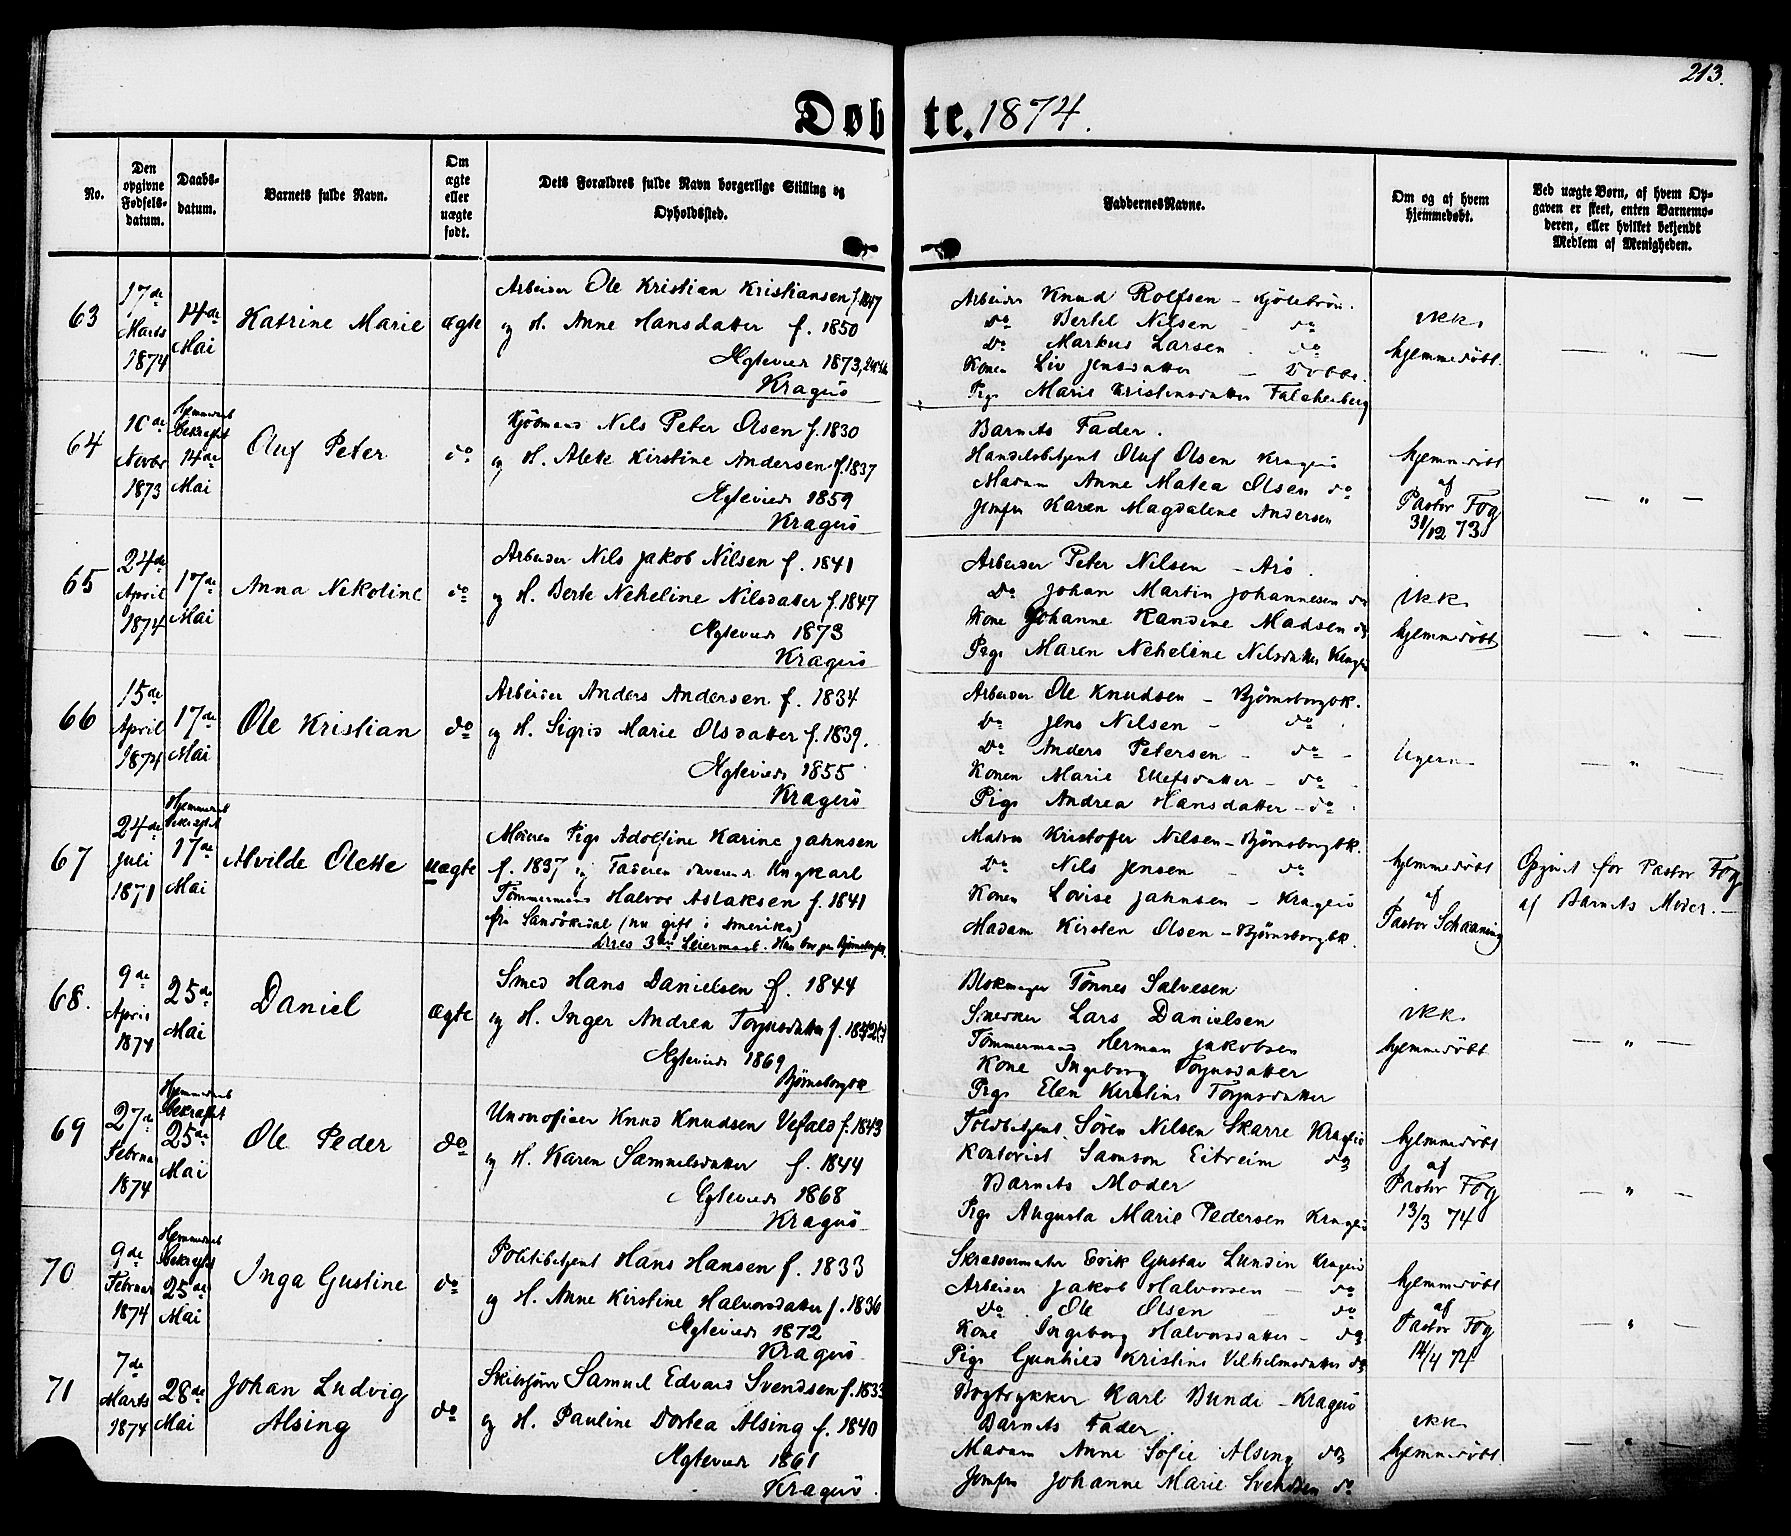 213.
Døbte. 1874.
No.
Den opgivne Fødselsdatum.
Daabsdatum.
Barnets fulde Navn.
Om ægte eller uægte født.
Dets Forældres fulde Navn borgerlige Stilling og Opholdssted.
Faddernes Navne.
Om og af hvem hjemmedøbt.
Ved uægte Børn, af hvem Opgaven er skeet, enten Barnemoderen, eller hvilket bekjendt Medlem af Menigheden.
63
17de Marts 1874
14de Mai
Katrine Marie
ægte
Arbeider Ole Kristian Kristiansen f. 1847
og H. Anne Hansdatter f. 1850
Ægteviet 1873,
Kragerø
Arbeider Knud Rolfsen - Kjölebrön.
Do Bertel Nilsen - do
Do Markus Larsen - do
Konen Liv Jensdatter
Pige Marie Kristensdatter Falchenberg
ikke
hjemmedöbt.
— " —
64
10de Novbr 1873
Hjemmedaab bekræftet 14de Mai
Oluf Peter
do
Kjöbmand Nils Peter Olsen f. 1830
og H. Alete Kirstine Andersen f. 1837
Ægteviet 1859
Kragerö
Barnets Fader.
Handelsbetjent Oluf Olsen Kragerö
Madam Anne Matea Olsen do
Jomfru Karen Magdalene Andersen
hjemmedöbt
af
Pastor Fog
31/12 73
— " —
65
24de April 1874
17de Mai
Anna Nekoline
do
Arbeider Nils Jakob Nilsen f. 1841
og H. Berte Neheline Nilsdatter f. 1847
Ægteviet 1873
Kragerö
Arbeider Peter Nilsen - Arö.
Do Johan Martin Johannesen do
Kone Johanne Randine Madsen do
Pige Maren Neheline Nilsdatter Kragerö
ikke
hjemmedöbt
— " —
66
15de April 1874
17de Mai
Ole Kristian
do
Arbeider Anders Andersen f. 1834
og H. Sigrid Marie Olsdatter f. 1839.
Ægteviet 1855
Kragerö
Arbeider Ole Knudsen - Bjørnsborgbk.
Do Jens Nilsen - do
Do Anders Petersen - do -
Konen Marie Ellefsdatter - do
Pige Andrea Hansdatter - do
— " —
67
24de Juli 1871
Hjemmedaab bekræftet 17de Mai
Alvilde Olette
uægte
Moderen Pige Adolfine Karine Jahnsen
f. 1837 og Faderen daværende Ungkarl
Tömmermand Halvor Aslaksen f. 1841
fra Sandökedal (nu gift i Amerika)
Deres 3die Leiermaal. Hun bor paa Bjørnsborgbk.
Matros Kristoffer Nilsen - Bjørnsborgbk.
Do Nils Jensen - do
Konen Lovise Jahnsen - Kragerö
Madam Kirsten Olsen - Bjørnsborgbk.
hjemmedöbt
af
Pastor Schaaning
Opgivet for Pastor Fog
af Barnets Moder. —
68.
9de April 1874
25de Mai
Daniel
ægte
Smed Hans Danielsen f. 1844
og H. Inger Andrea Torgusdatter
Ægteviet 1869
Bjørnsborgbk
Blokmager Tönnes Salvesen
Snedker Lars Danielsen
Tömmermand Herman Jakobsen
Kone Ingeborg Torgusdatter
Pige Elen Kirstine Torgusdatter
ikke
hjemmedöbt
— " —
69
27de Februar 1874
Hjemmedaab bekræftet 25de Mai
Ole Peder
do
Underofficer Knud Knudsen Vefald f. 1843
og H. Karen Samuelsdatter f. 1844
Ægteviet 1868
Kragerö
Toldbetjent Sören Nilsen Skarre Kragerö
Kontorist Samson Eitreim do
Barnets Moder
Pige Augusta Marie Pedersen Kragerö
hjemmedöbt
af
Pastor Fog
13/3 74
— " —
70
9de Februar 1874
Hjemmedaab bekræftet 25de Mai
Inga Gustine
do
Politibetjent Hans Hansen f. 1833
og H. Anne Kirstine Halvorsdatter f. 1836
Ægteviet 1872
Kragerö
Skræddermester Erik Gustav Lundin Kragerö
Arbeider Jakob Halvorsen - do
Do Ole Olsen - do
Kone Ingeborg Halvorsdatter - do
Pige Gunhild Kristine Vilhelmsdatter do
hjemmedöbt
af
Pastor Fog
14/4 74
— " —
71
7de Marts 1874
28de Mai
Johan Ludvig Alsing
do
Skibsförer Samuel Edvard Svendsen f. 1833
og H. Pauline Dortea Alsing f. 1840
Ægteviet 1861
Kragerö.
Bogtrykker Karl Bundi - Kragerö
Barnets Fader
Madam Anne Sofie Alsing do
Jomfru Johanne Marie Svendsen do
ikke
hjemmedöbt
— " —